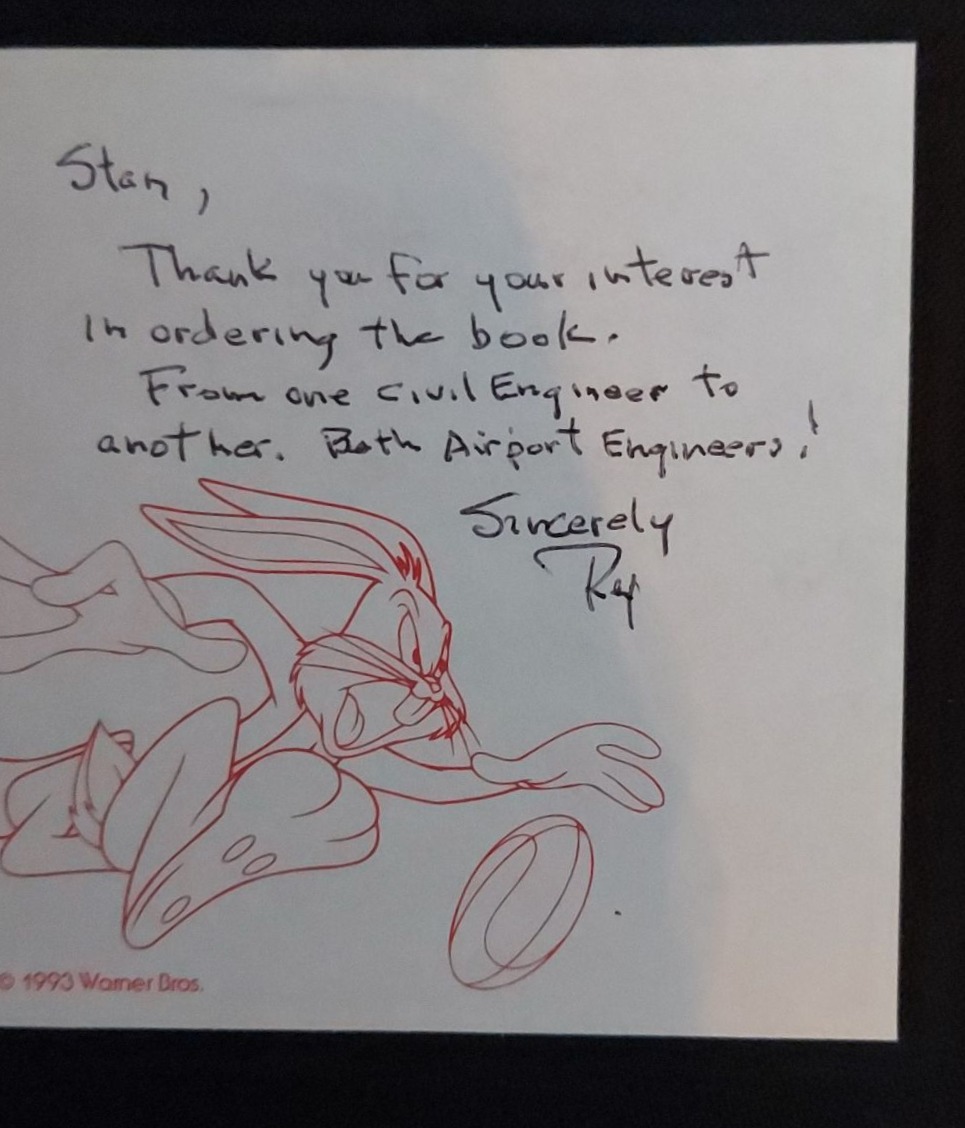 Stan,
Thank you for your interest
in ordering the book.
From one Civil Engineer to
another. Both Airport Engineers!
Sincerely
Ray
© 1993 Warner Bros.